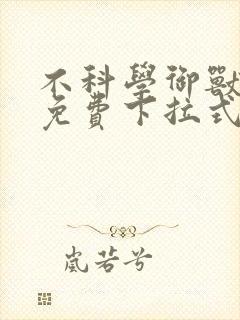 不科學御獸
免費下拉式
嵐若兮